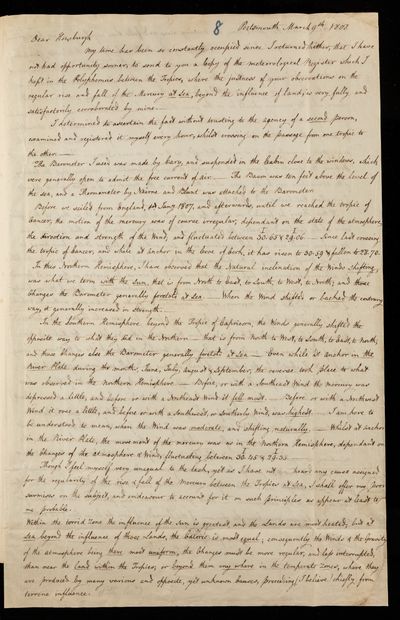 8
Portsmouth March 9th 1808
Dear Horsburgh
My time has been so constantly occupied since I returned hither, that I have
not had opportunity sooner, to send to you a Copy of the meteorological Register which I
kept in the Polyphemus between the Tropics, where the justness of your observations on the
regular rise and fall of the Mercury at Sea, beyond the influence of land, is very fully and
satisfactorily corroborated by mine.
I determined to ascertain the fact without trusting to the agency of a second person,
examined and registered it myself every hour, whilst crossing on the passage from one tropic to
the other.
The Barometer I used was made by Cary, and suspended in the Cabin close to the windows, which
were generally open to admit the free current of air. The Bason was ten feet above the level of
the sea, and a Thermometer by Nairne and Blunt was attached to the Barometer
Before we sailed from England, Jany 1807, and afterwards, until we reached the tropic of
Cancer, the motion of the mercury was of course irregular, dependant on the state of the atmosphere,
the direction and strength of the Wind, and fluctuated between 30.65 & 29.06. Since last crossing
the tropic of Cancer, and while at anchor in the Cove of Cork, it has risen to 30.59 & fallen to 28.70.
In this Northern Hemisphere, I have observed that the Natural inclination of the Winds shifting,
was what we term with the Sun, that is from North to East, to South, to West, to North; and those
Changes the Barometer generally foretels at Sea. When the Wind shifted or backed the contrary
way, it generally increased in strength.
In the Southern Hemisphere beyond the Tropic of Capricorn, the Winds generally shifted the
opposite way to what they did in the Northern — that is from North to West, to South, to East, to North,
and those Changes also the Barometer generally foretels at Sea — Even while at anchor in the
River Plate during the months, June, July, August & September, the reverse took place to what
was observed in the Northern Hemisphere — Before, or with a Southeast Wind the mercury was
depressed a little, and before or with a Northeast Wind it fell most. Before or with a Northwest
Wind it rose a little, and before or with a Southwest, or Southerly Wind, was highest. I am here to
be understood to mean, when the Wind was moderate, and shifting naturally. Whilst at anchor
in the River Plate, the movement of the mercury was as in the Northern Hemisphere, dependant on
the Changes of the atmosphere & Winds, fluctuating between 30.45 & 29.35
Though I feel myself very unequal to the task, yet as I have not heard any cause assigned
for the regularity of the rise & fall of the Mercury between the Tropics at Sea, I shall offer my
presumptions on the subject, and endeavour to account for it on such principles as appear at least to
me probable.
Within the torrid Zone the influence of the Sun is greatest and the Lands are most heated; but at
Sea, beyond the influence of those Lands, the Caloric is most equal; consequently the Winds & the Gravity
of the atmosphere being there most uniform, the Changes must be more regular, and less interrupted,
than near the Land within the Tropics, or beyond them any where in the temperate Zones, where they
are produced by many various and opposite, yet unknown causes, proceeding (I believe) chiefly from
terrene influence.